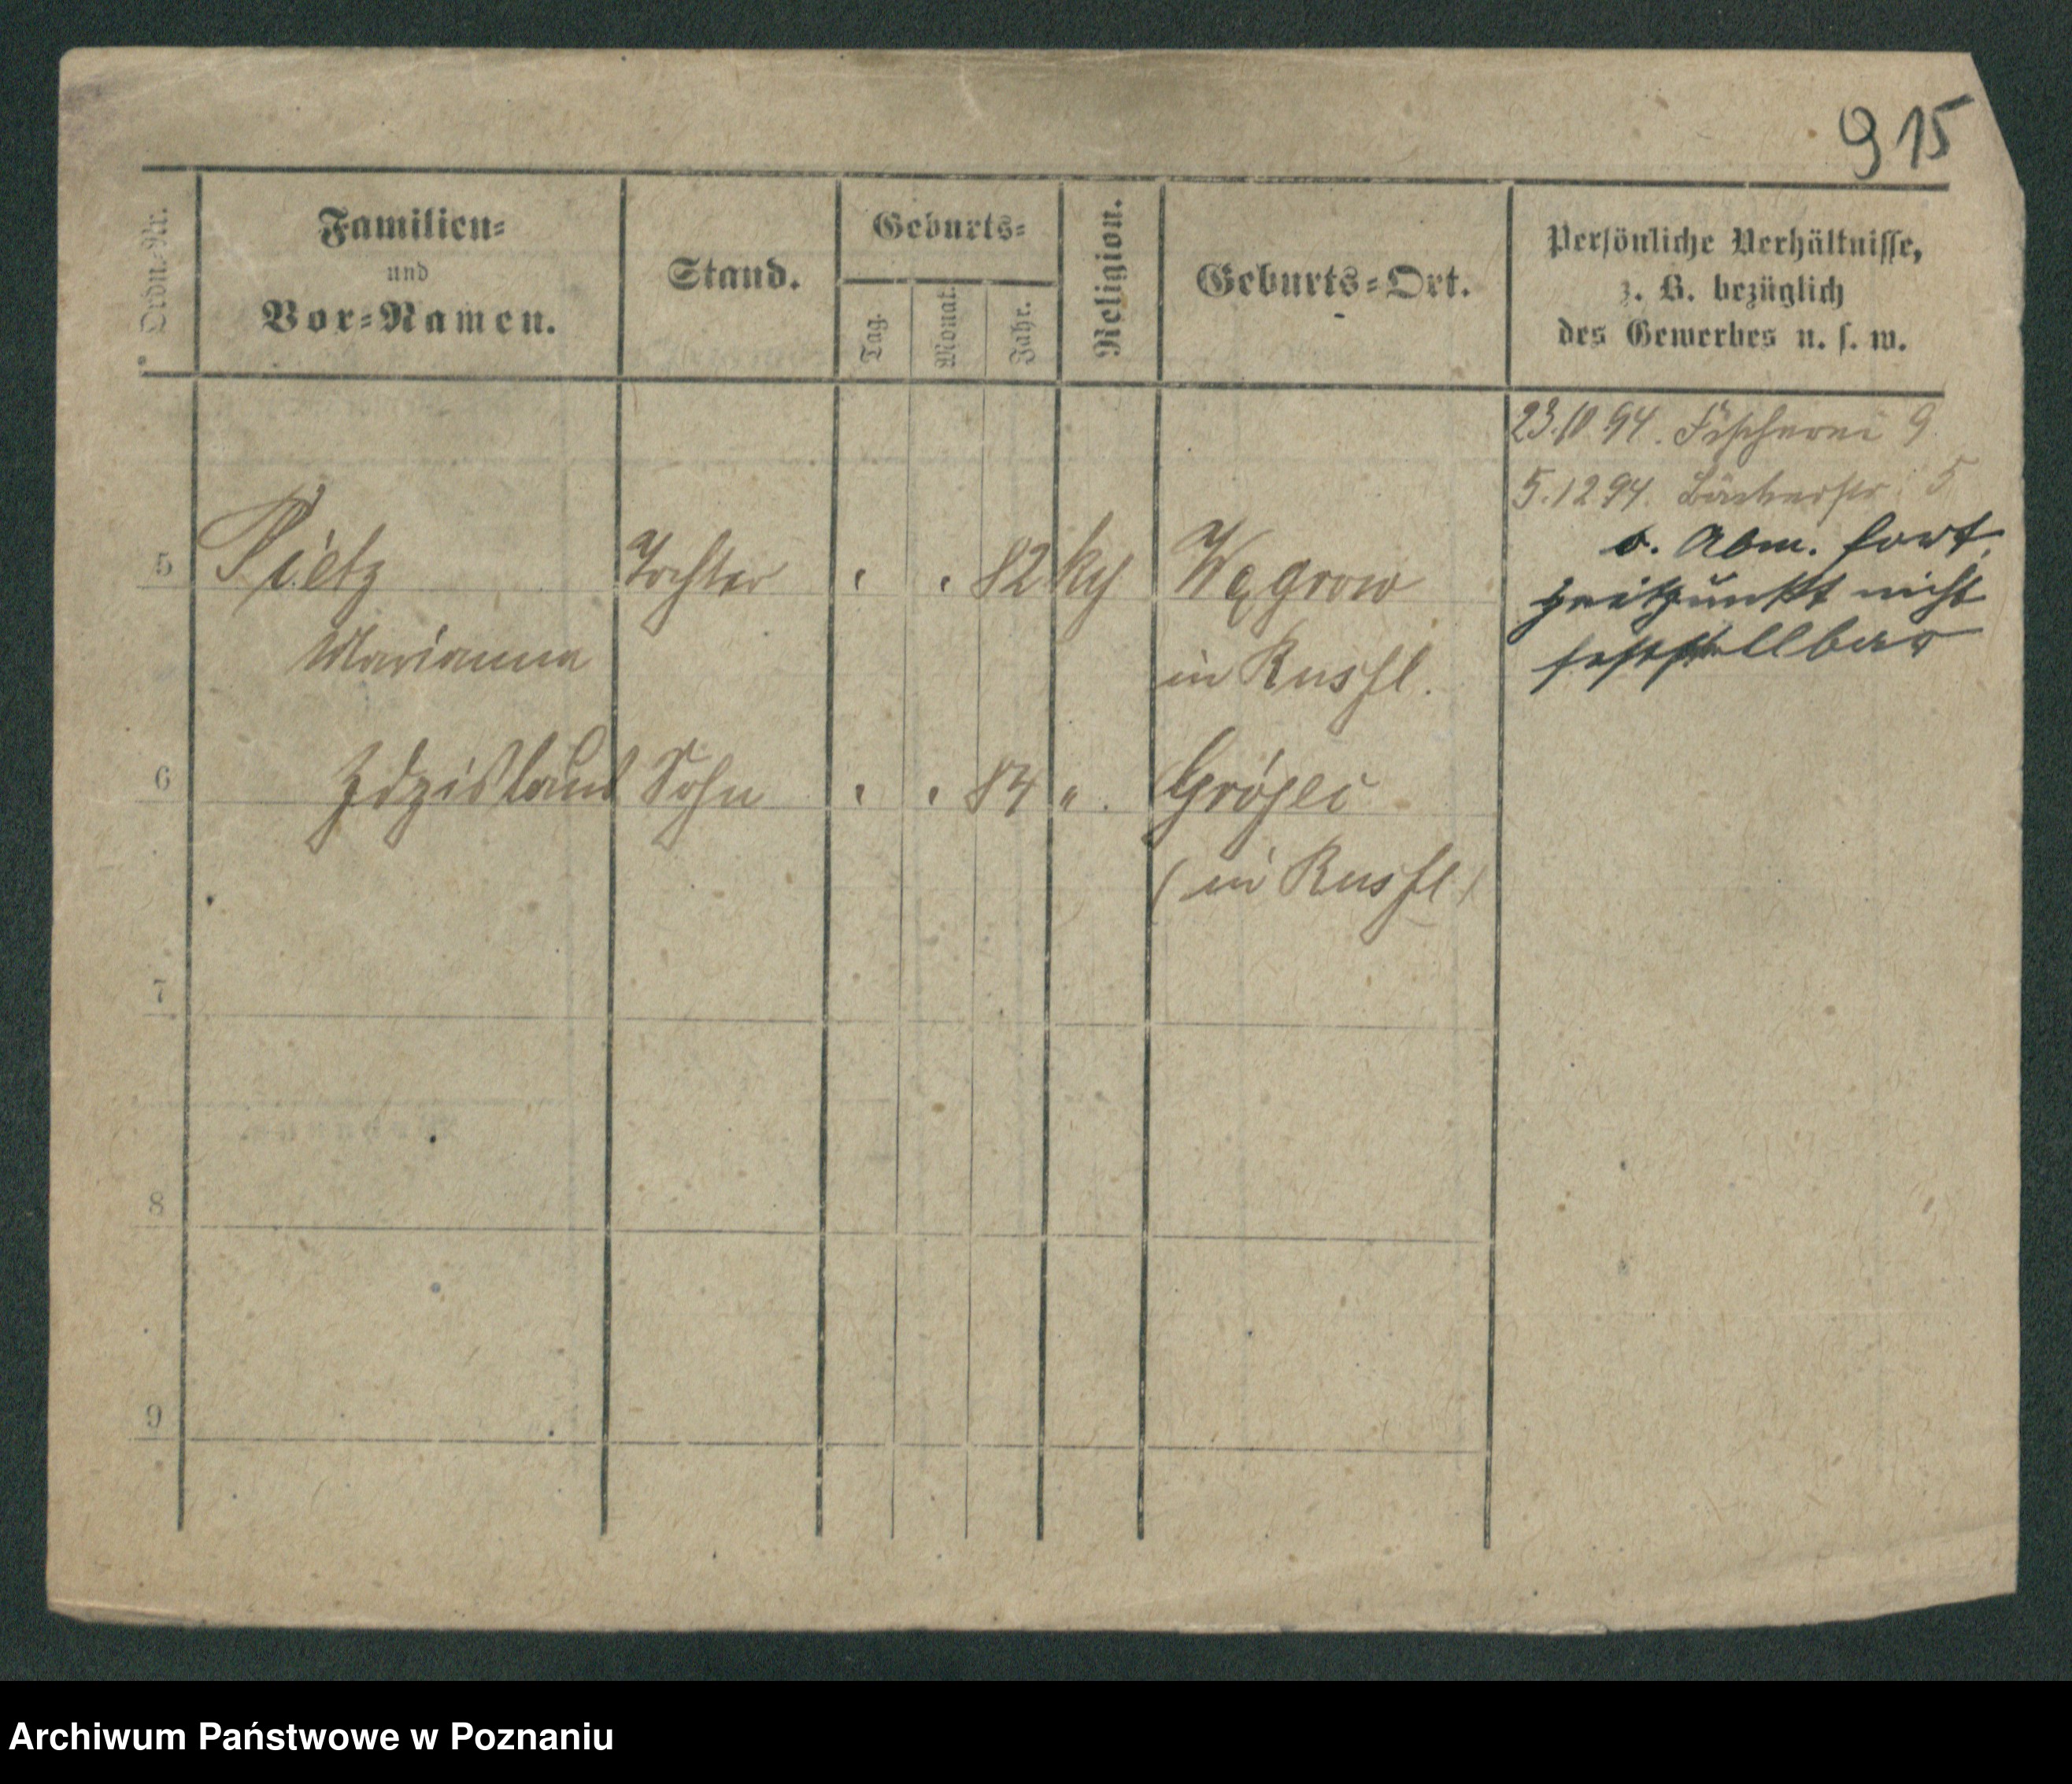 915
Ordn.-Nr.
Familien-
und
Vor-Namen.
Stand.
Geburts-
Tag.
Monat.
Jahr.
Religion.
Geburts-Ort.
Persönliche Verhältnisse,
z. B. bezüglich
des Gewerbes u. s. w.
23.10.94. Fischerei 9.
5.12.94. Bäckerstr. 5
o. Abm. fort,
zeitpunkt nicht
feststellbar
5 Pietz Tochter " " 82 kg Węgrow
Marianna in Russl.
6 Zdzislaus Sohn " " 84 " Grójec
(in Russl.)
7
8
9
Archiwum Państwowe w Poznaniu